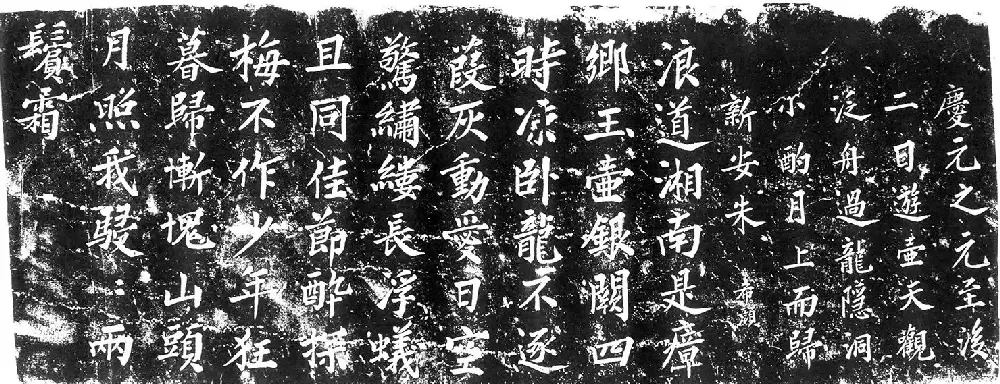 慶元之元至後
二日遊壺天觀
泛舟過龍隱洞
小酌月上而歸
新安朱希顏
浪道湘南是瘴
鄉玉壺銀闕四
時凉卧龍不逐
葭灰動愛日空
驚繡縷長浮蟻
且同佳節醉探
梅不作少年狂
暮歸慚愧山頭
月照我駸〻兩
鬢霜